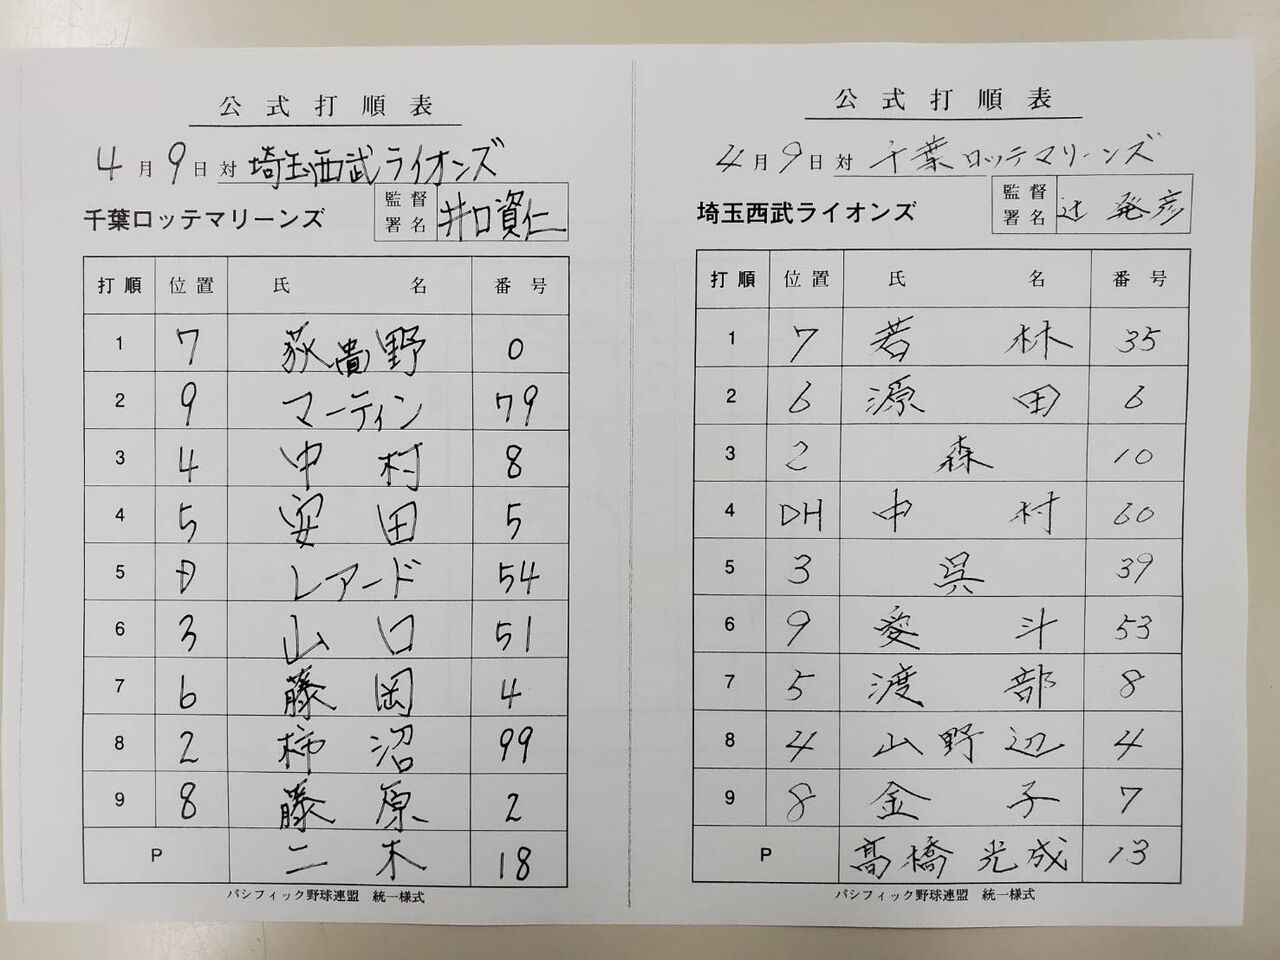 公式打順表
4月9日対 埼玉西武ライオンズ
千葉ロッテマリーンズ 監督署名 井口資仁
打順 位置 氏名 番号
1 7 荻貴野 0
2 9 マーティン 79
3 4 中村 8
4 5 安田 5
5 D レアード 54
6 3 山口 51
7 6 藤岡 4
8 2 柿沼 99
9 8 藤原 2
P 二木 18
パシフィック野球連盟 統一様式
公式打順表
4月9日対 千葉ロッテマリーンズ
埼玉西武ライオンズ 監督署名 辻発彦
打順 位置 氏名 番号
1 7 若林 35
2 6 源田 6
3 2 森 10
4 DH 中村 60
5 3 呉 39
6 9 愛斗 53
7 5 渡部 8
8 4 山野辺 4
9 8 金子 7
P 髙橋光成 13
パシフィック野球連盟 統一様式